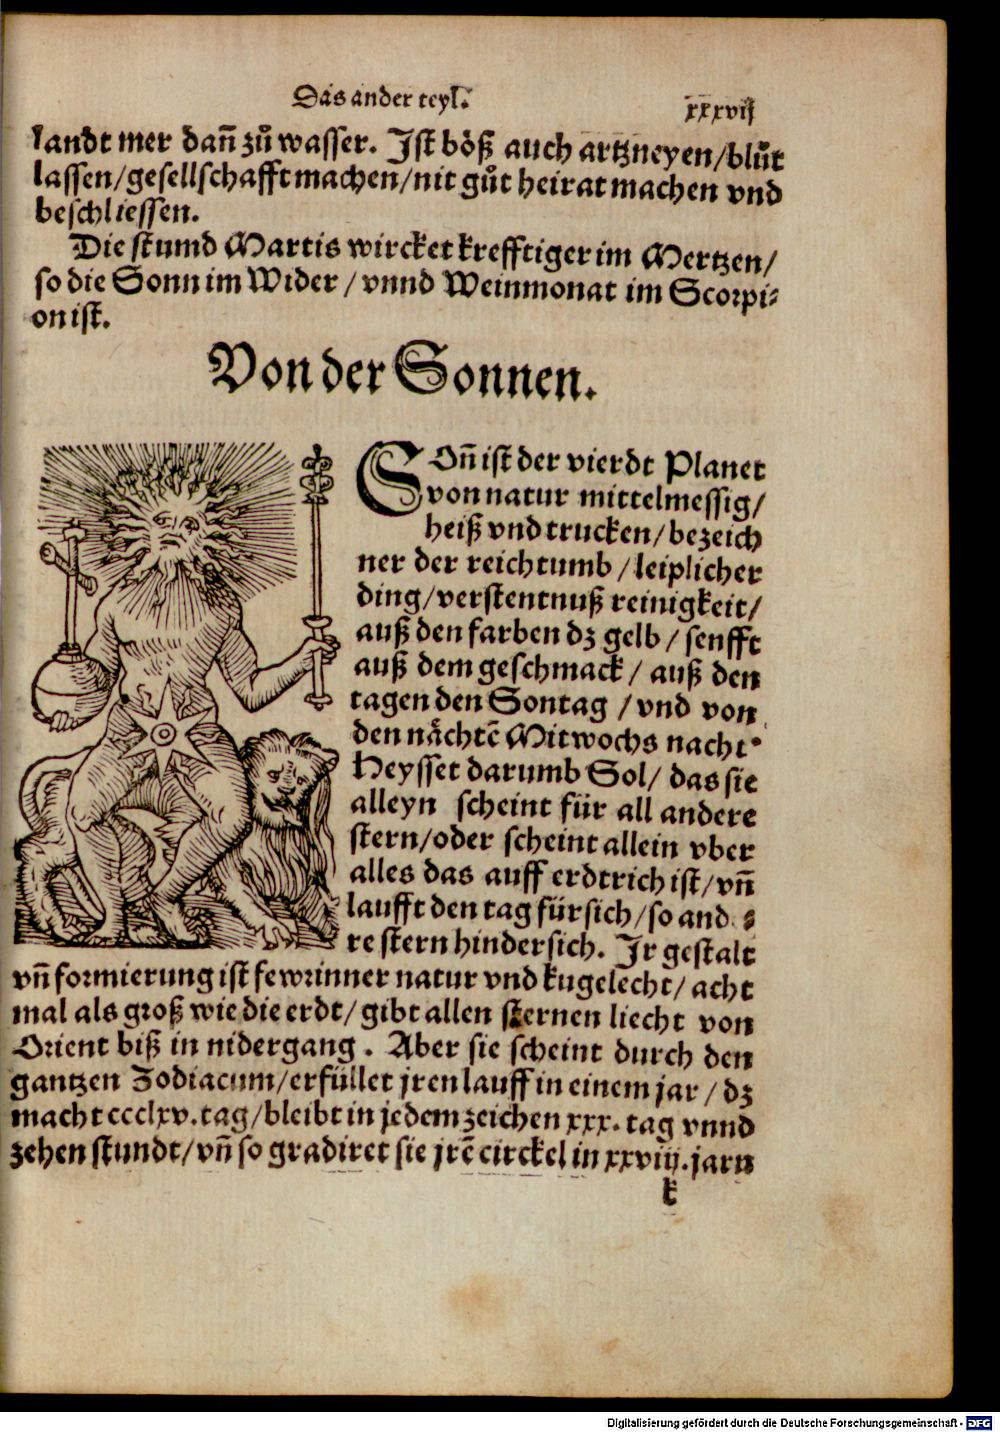 Das ander teyl.
xxxvij
landt mer dañ zů wasser. Jst böß auch artzneyen/blůt
lassen/gesellschafft machen/nit gůt heirat machen vnd
beschliessen.
Die stumd Martis wircket krefftiger im Mertzen/
so die Sonn im Wider / vnnd Weinmonat im Scorpi⸗
on ist.
Von der Sonnen.
SOñ ist der vierdt Planet
von natur mittelmessig/
heiß vnd trucken/bezeich
ner der reichtumb /leiplicher
ding/verstentnuß reinigkeit/
auß den farben dz gelb/ senfft
auß dem geschmack/ auß den
tagen den Sontag /vnd von
den nächtē Mitwochs nacht.
Heysset darumb Sol/ das sie
alleyn scheint für all andere
stern/oder scheint allein vber
alles das auff erdtrich ist/vñ
laufft den tag fürsich/so and⸗
re stern hindersich. Jr gestalt
vñ formierung ist fewrinner natur vnd kugelecht/ acht
mal als groß wie die erdt/gibt allen sternen liecht von
Orient biß in nidergang. Aber sie scheint durch den
gantzen Zodiacum/erfüllet jren lauff in einem jar/ dz
macht ccclxv. tag/bleibt in jedem zeichen xxx. tag vnnd
zehen stundt/vñ so gradiret sie jrē circkel in xxviij. jarn
k
Digitalisierung gefördert durch die Deutsche Forschungsgemeinschaft - DFG